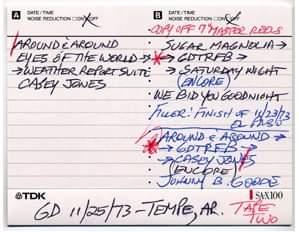 A DATE / TIME
NOISE REDUCTION ON OFF
AROUND & AROUND
EYES OF THE WORLD →
→ WEATHER REPORT SUITE
CASEY JONES
B DATE / TIME
NOISE REDUCTION ON OFF
COPY OFF 7" MASTER REELS
SUGAR MAGNOLIA →
→ GDTRFB →
→ SATURDAY NIGHT
(ENCORE)
WE BID YOU GOODNIGHT
FILLER: FINISH OF 11/23/73
EL PASO
AROUND & AROUND →
→ GDTRFB →
→ CASEY JONES
(ENCORE)
JOHNNY B. GOODE
TDK
SAX100
GD 11/25/73 - TEMPE, AR.
TAPE
TWO